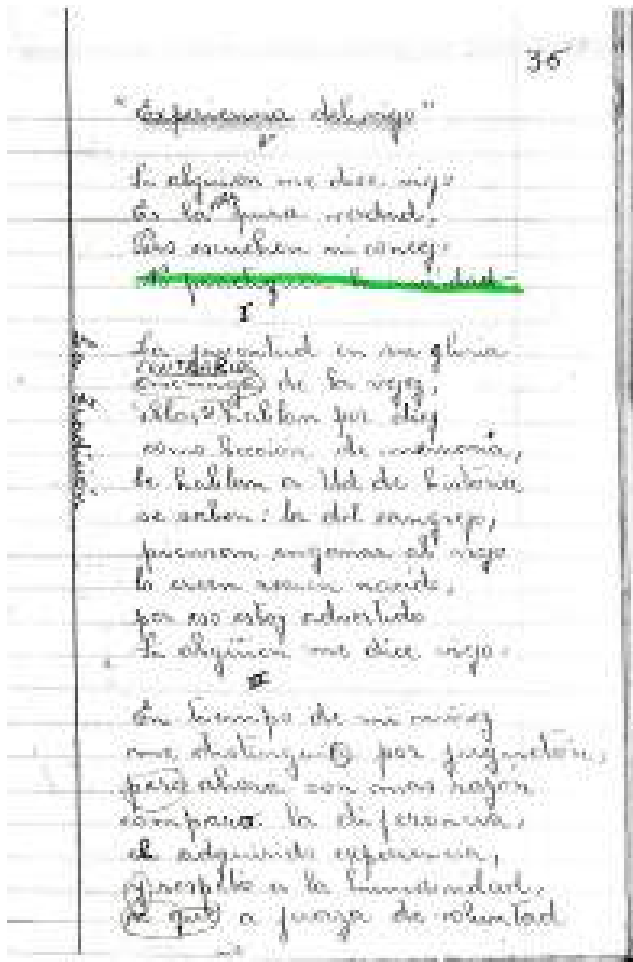 36
"Experiencia del viejo"
Si alguien me dice viejo
Es la pura verdad,
Pero escuchen mi concejo
I
La juventud en su gloria
contraria
enemiga de la vejez,
ellos hablan por diez
como lección de memoria,
le hablan a Ud de historia
se saben: la del cangrejo,
piensan engañar al viejo
lo creen recien nacido,
por eso estoy advertido
Si alguien me dice viejo.
II
En tiempo de mi niñez
me distingui por juguetón,
pero ahora con mas razón
comparo la diferencia,
e adquirido experiencia,
y respeto a la humanidad,
a fuerza de voluntad
La tradición